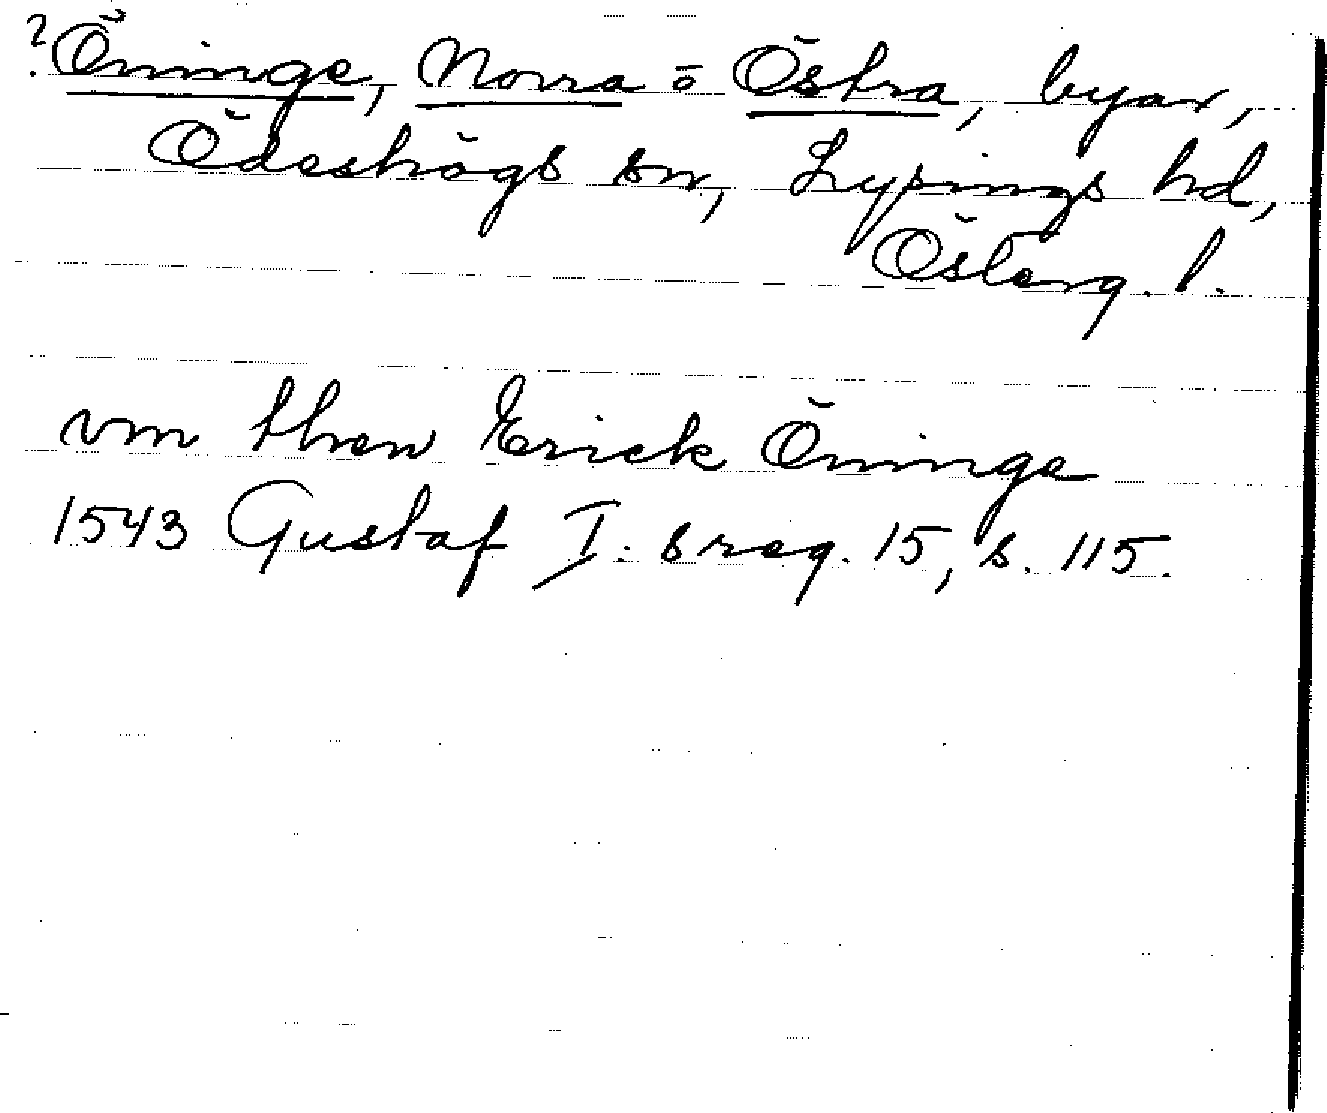 ? Öninge, Norra o Östra, byar,
Ödeshögs sn, Lysings hd,
Österg. l.
vm then Erick Öninge
1543 Gustaf I:s reg. 15, s. 115.